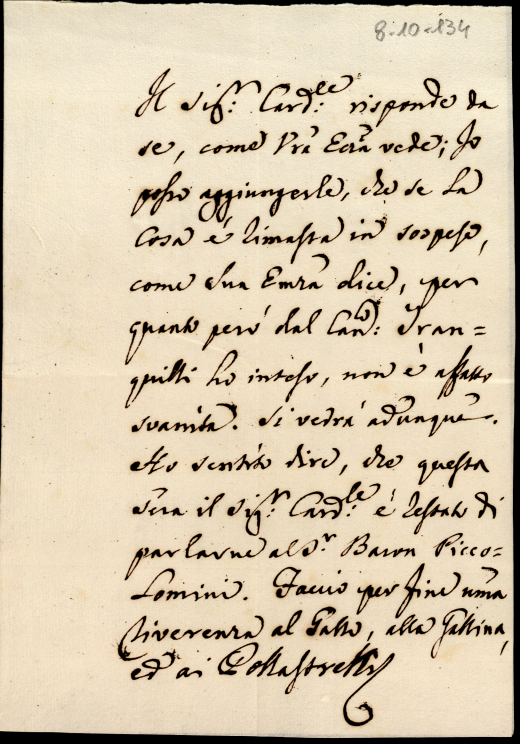 8-10-134
Il Sig.r Card.le risponde da
se, come Vrã Ecrã vede; Io
posso aggiungerle, che se la
Cosa é rimasta in sospeso,
come Sua Emzã dice, per
quanto peró dal Can.co Tran=
quilli ho inteso, non è affatto
svanita. Si vedrá adunque.
Ho sentito dire, che questa
Sera il Sig.r Card.le é restato di
parlarne al S.r Baron Picco=
Lomini. Faccio per fine umã
riverenza al Gallo, alla Gallina,
ed ai Pollastrelli